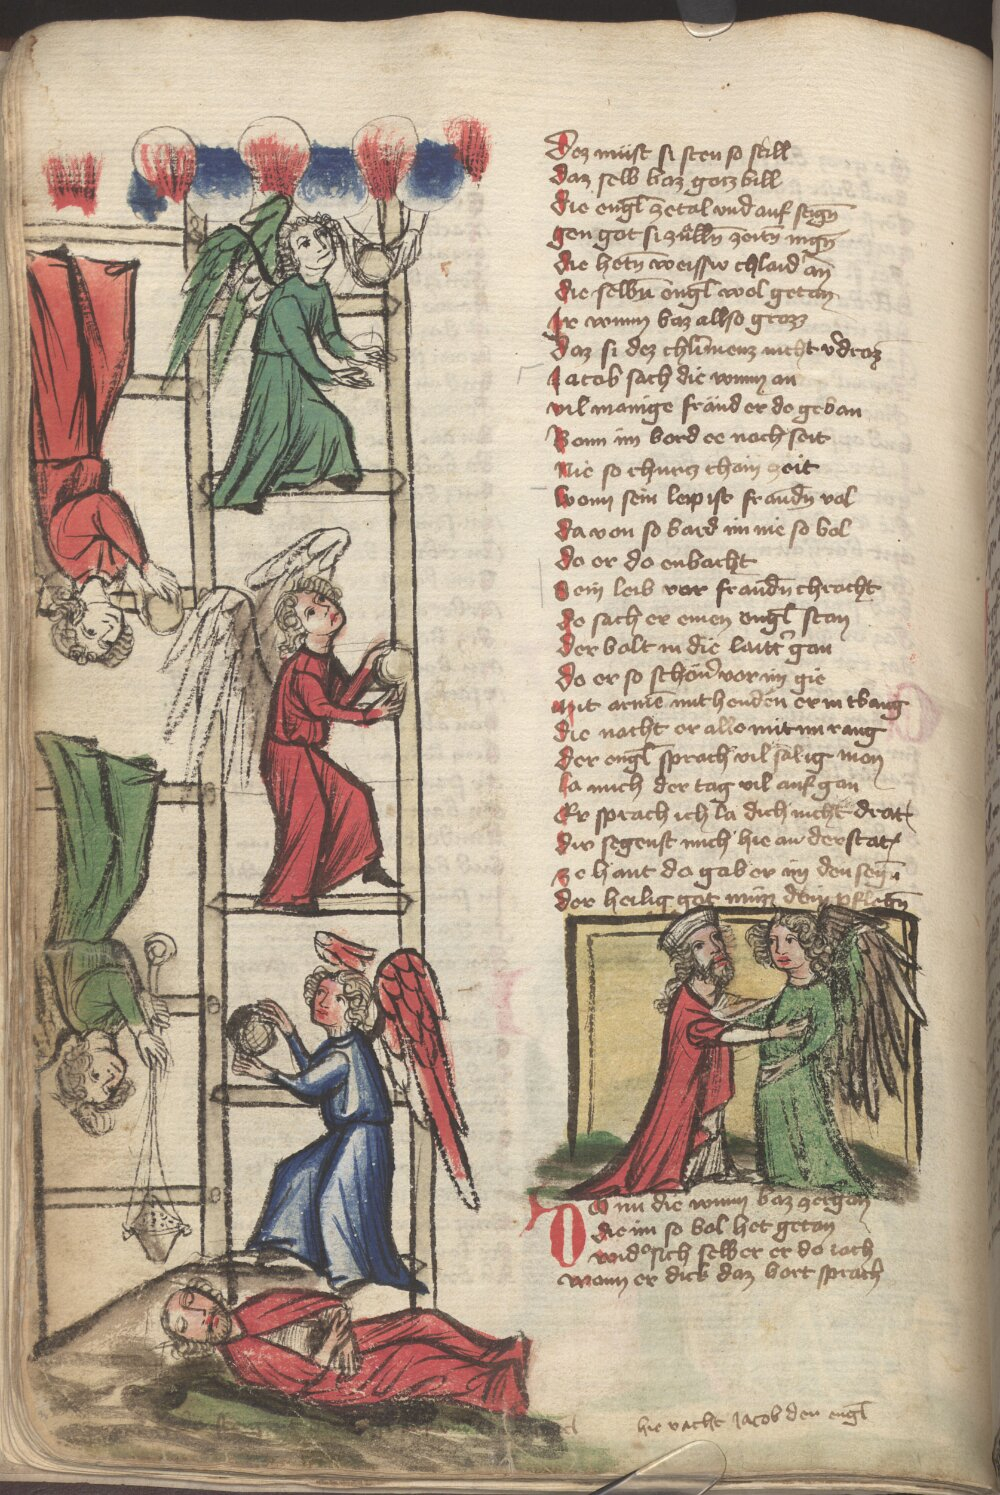 Dez müst si sten so still
Daz selb baz gotz bill
Die engl zetal vnd auf stign
gen got si zülln zeitn mign
Die hetn weissiv chlaid an
Die selbn engl wol getan
Ir wunn baz allso grozz
Daz si dez chümenz nicht vdroz
Jacob sach die wunn an
vil manige fräud er do geban
Bonn im bord ee noch seit
Nie so churcz chain zeit
Wonn sein leip ist fraudn vol
Da von so bard im nie so bol
do er do enbacht
Sein leib vor fraudn chracht
do sach er einen engl stan
Der bolt in die laittr gan
Do er so schon vor im gie
Mit armē mit henden er in tbang
die nacht er allo mit im rang
Der engl sprach vil sälig man
la mich der tag vil auf gan
Er sprach ich la dich nicht drat
Div segenst mich hie an der stat
ze hant do gab er im den segn
der heilig got müzz dein pflegn
Do nu die wunn baz zergan
die im so bol het getan
wid sich selber er do iach
wann er dick daz bort sprach
hie vacht Jacob den engl